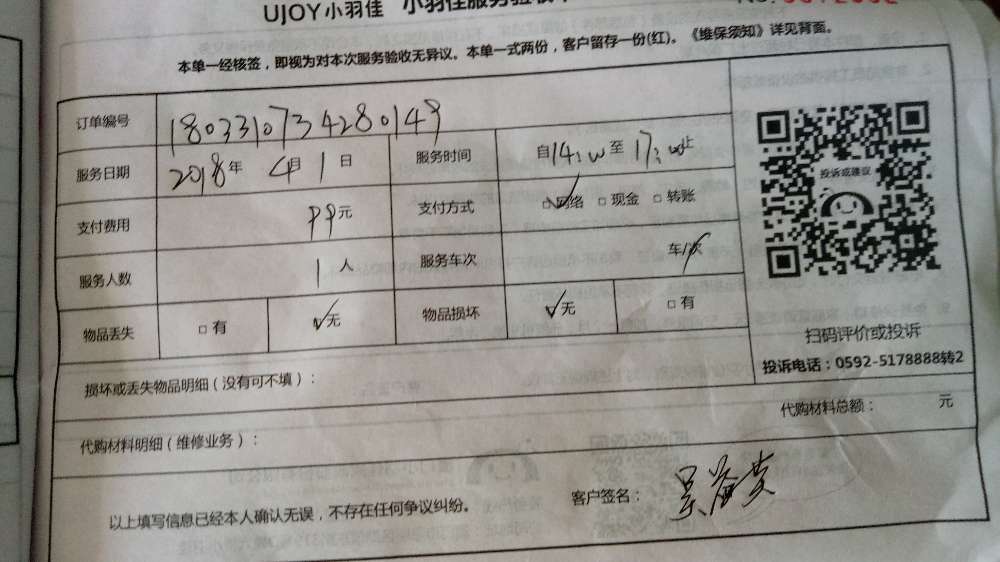 UJOY小羽佳 小羽佳服务验收单
本单一经核签，即视为对本次服务验收无异议。本单一式两份，客户留存一份(红)。《维保须知》详见背面。
订单编号 1803310734280149
服务日期 2018年 4月1日 服务时间 自14:00至17:00止
支付费用 99元 支付方式 ☑网络 □现金 □转账
服务人数 1人 服务车次 车/次
物品丢失 □有 ☑无 物品损坏 ☑无 □有
投诉或建议
扫码评价或投诉
投诉电话：0592-5178888转2
损坏或丢失物品明细（没有可不填）：
代购材料明细（维修业务）： 代购材料总额： 元
以上填写信息已经本人确认无误，不存在任何争议纠纷。 客户签名：